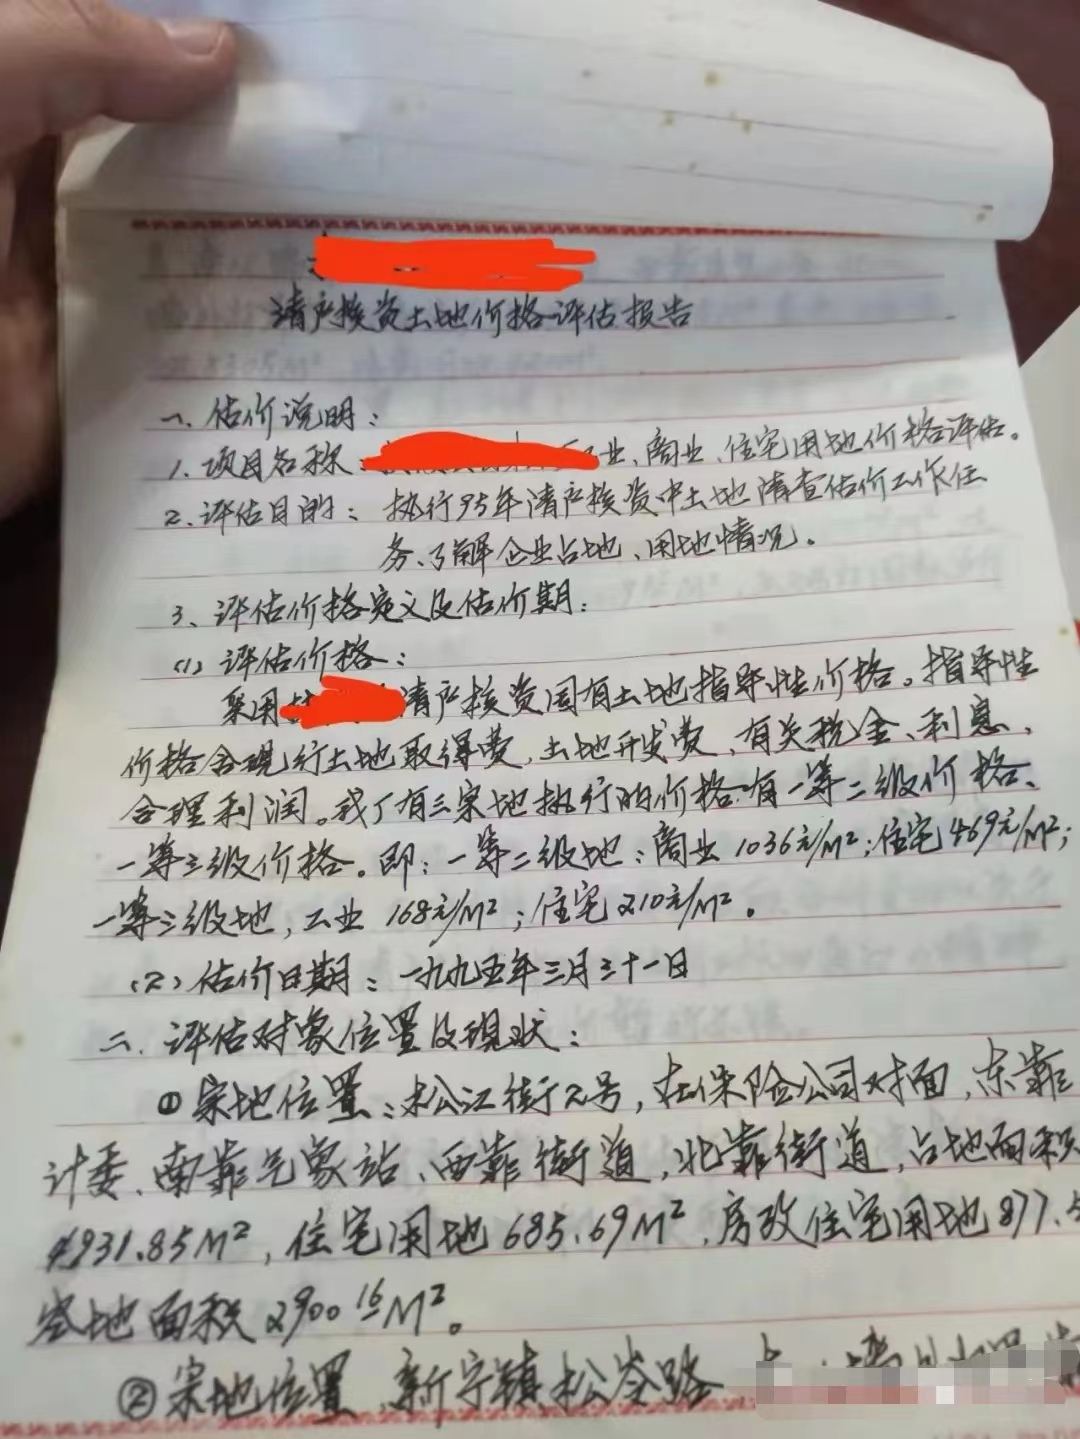 清产核资土地价格评估报告
一、估价说明：
1、项目名称： 工业、商业、住宅用地价格评估。
2、评估目的：执行95年清产核资中土地清查估价工作任
务、了解企业占地、用地情况。
3、评估价格定义及估价期：
(1) 评估价格：
采用 清产核资国有土地指导性价格。指导性
价格含现行土地取得费、土地开发费、有关税金、利息、
合理利润。我厂有三宗地执行的价格有一等二级价格、
一等三级价格。即：一等二级地：商业1036元/M²；住宅469元/M²；
一等三级地，工业168元/M²；住宅210元/M²。
(2) 估价日期：一九九五年三月三十一日
二、评估对象位置及现状：
① 宗地位置：松江街2号，在保险公司对面，东靠
计委、南靠气象站、西靠街道，北靠街道，占地面积
4931.85M²，住宅用地685.69M²，房改住宅用地877.5
空地面积2900.16M²。
② 宗地位置、新宁镇松岑路